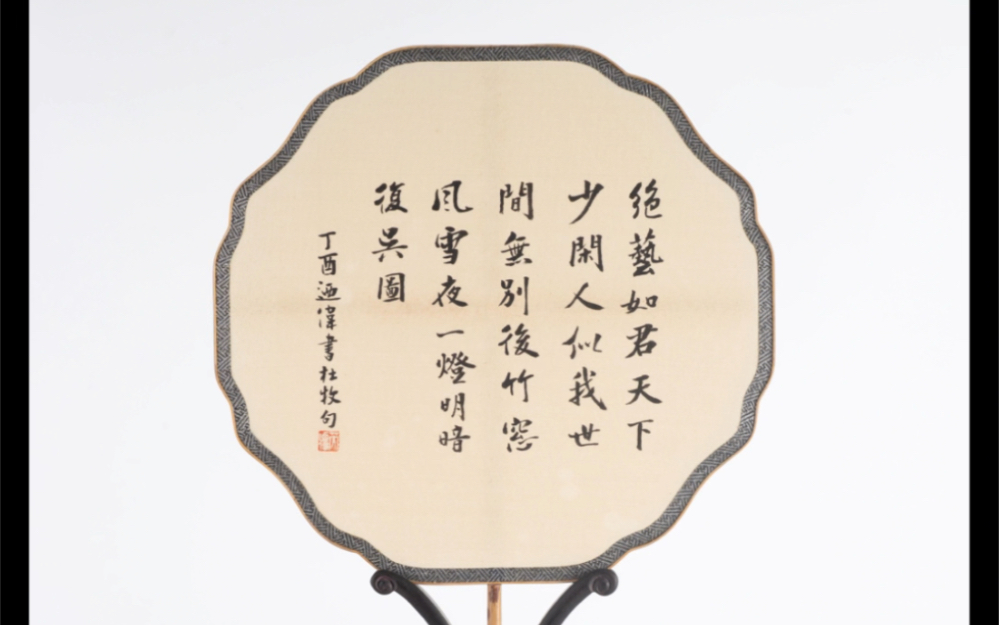 絶藝如君天下
少閑人似我世
間無別後竹窓
風雪夜一燈明暗
復吳圖
丁酉迺偉書杜牧句